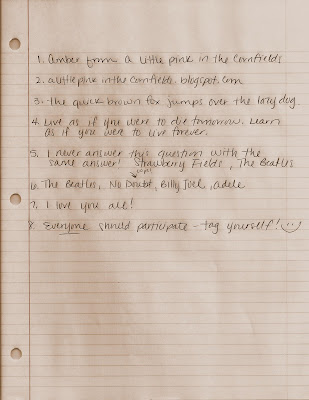 1. Amber from a little pink in the Cornfields
2. alittlepinkinthecornfields.blogspot.com
3. the quick brown fox jumps over the lazy dog
4. Live as if you were to die tomorrow. Learn
as if you were to live forever.
5. I never answer this question with the
same answer! Strawberry Fields, The Beatles
6. The Beatles, No Doubt, Billy Joel, adele
7. I love you all!
8. Everyone should participate - tag yourself!